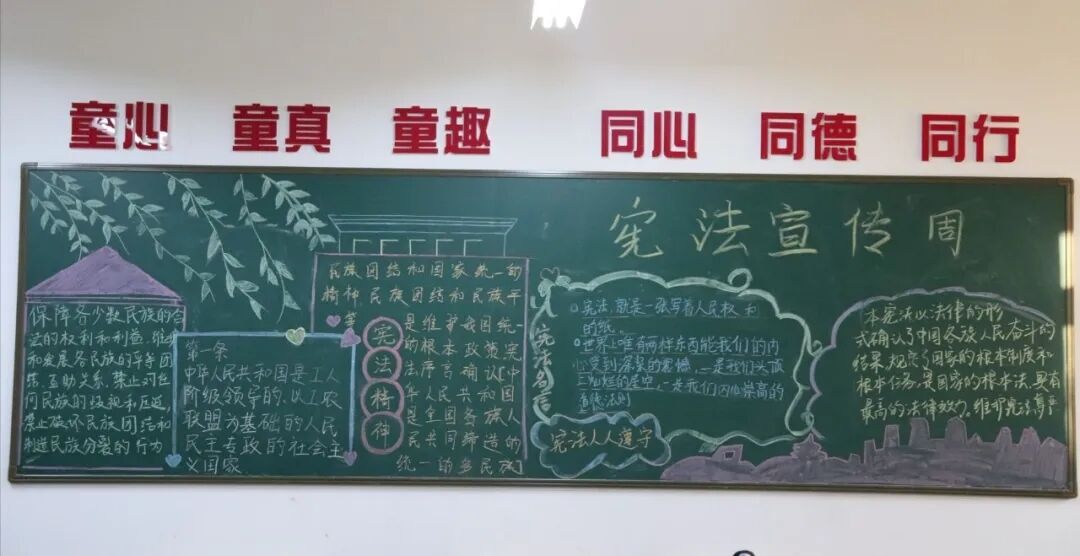 童心 童真 童趣 同心 同德 同行
宪法宣传周
保障各少数民族的合
法的权利和利益、维护
和发展各民族的平等团
结、互助关系、禁止对任
何民族的歧视和压迫,
禁止破坏民族团结和
制造民族分裂的行为
第一条
中华人民共和国是工人
阶级领导的、以工农
联盟为基础的人民
民主专政的社会主
义国家
民族团结和国家统一的
精神民族团结和民族平
等
是维护我国统一
的根本政策宪
法序言确认[中
华人民共和国
是全国各族人
民共同缔造的
统一的多民族]
宪法精神
宪法名言
宪法,就是一张写着人民权利
的纸。
世界上唯有两样东西能我们的内
心受到深深的震憾,一是我们头顶
上灿烂的星空,一是我们内心崇高的
道德法则
宪法人人遵守
本宪法以法律的形
式确认了中国各族人民奋斗的
结果,规定了国家的根本制度和
根本任务,是国家的根本法,具有
最高的法律效力。维护宪法尊严